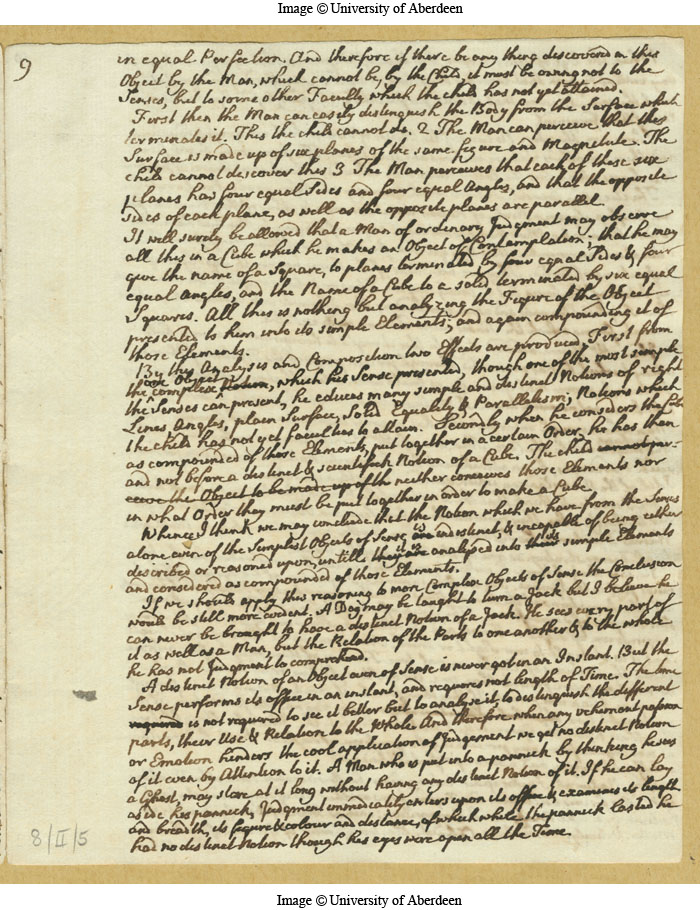 Image © University of Aberdeen
9
in equal Perfection. And therefore if there be any thing discovered in this
Object by the Man, which cannot be, by the Child, it must be owing not to the
Senses, but to some other Faculty which the child has not yet attained.
First then the Man can easily distinguish the Body from the Surface which
terminates it. This the child cannot do. 2 The Man can perceive that this
Surface is made up of six planes of the same figure and Magnitude. The
child cannot discover this 3 The Man perceives that each of these six
planes has four equal Sides and four equal Angles, and that the opposite
sides of each plane, as well as the opposite planes are parallel
It will surely be allowed that a Man of ordinary Judgment may observe
all this in a Cube which he makes an Object of Contemplation. that he may
give the name of a Square, to planes terminated by four equal Sides & four
equal Angles, and the Name of a Cube to a solid terminated by six equal
Squares. All this is nothing but analyzing the Figure of the Object
presented to him into its simple Elements, and again compounding it of
those Elements.
By this Analysis and Composition two Effects are produced, First from
the complex Object, which his Sense presented, though one of the most simple
the Senses can present, he educes many simple and distinct Notions of right
Lines Angles, plain Surface, Solid Equality & Parallelism; Notions which
the child has not yet faculties to attain. Secondly when he considers the Cube
as compounded of those Elements, put together in a certain Order, he has then
and not before a distinct & scientifick Notion of a Cube. The child cannot per-
ceive the Object to be made up of the neither conceives those Elements nor
in what Order they must be put together in order to make a Cube
Whence I think we may conclude that the Notion which we have from the Senses
alone even of the Simplest Objects of Sense is indistinct, & incapable of being either
described or reasoned upon, untill it is analysed into its simple Elements
and considered as compounded of those Elements.
If we should apply this reasoning to more Complex Objects of Sense the Conclusion
would be still more evident. A Dog may be taught to turn a Jack but I believe he
can never be brought to have a distinct Notion of a Jack. He sees every part of
it as well as a Man, but the Relation of the Parts to one another & to the whole
he has not Judgment to comprehend.
A distinct Notion of an Object even of Sense is never got in an Instant. But the
Sense performs its office in an instant, and requires not length of Time. The time
required is not required to see it better but to analyse it to distinguish the different
parts, their Use & Relation to the Whole And therefore when any vehement passion
or Emotion hinders the cool application of Judgement we get no distinct Notion
of it even by Attention to it. A Man who is put into a pannick by thinking he sees
a Ghost, may stare at it long without having any distinct Notion of it. If he can lay
aside his pannick, Judgment immediatly enters upon its office & examines its length
and breadth, its figure & colour and distance, of which while the pannick lasted he
had no distinct Notion though his eyes were open all the Time
8/II/5
Image © University of Aberdeen